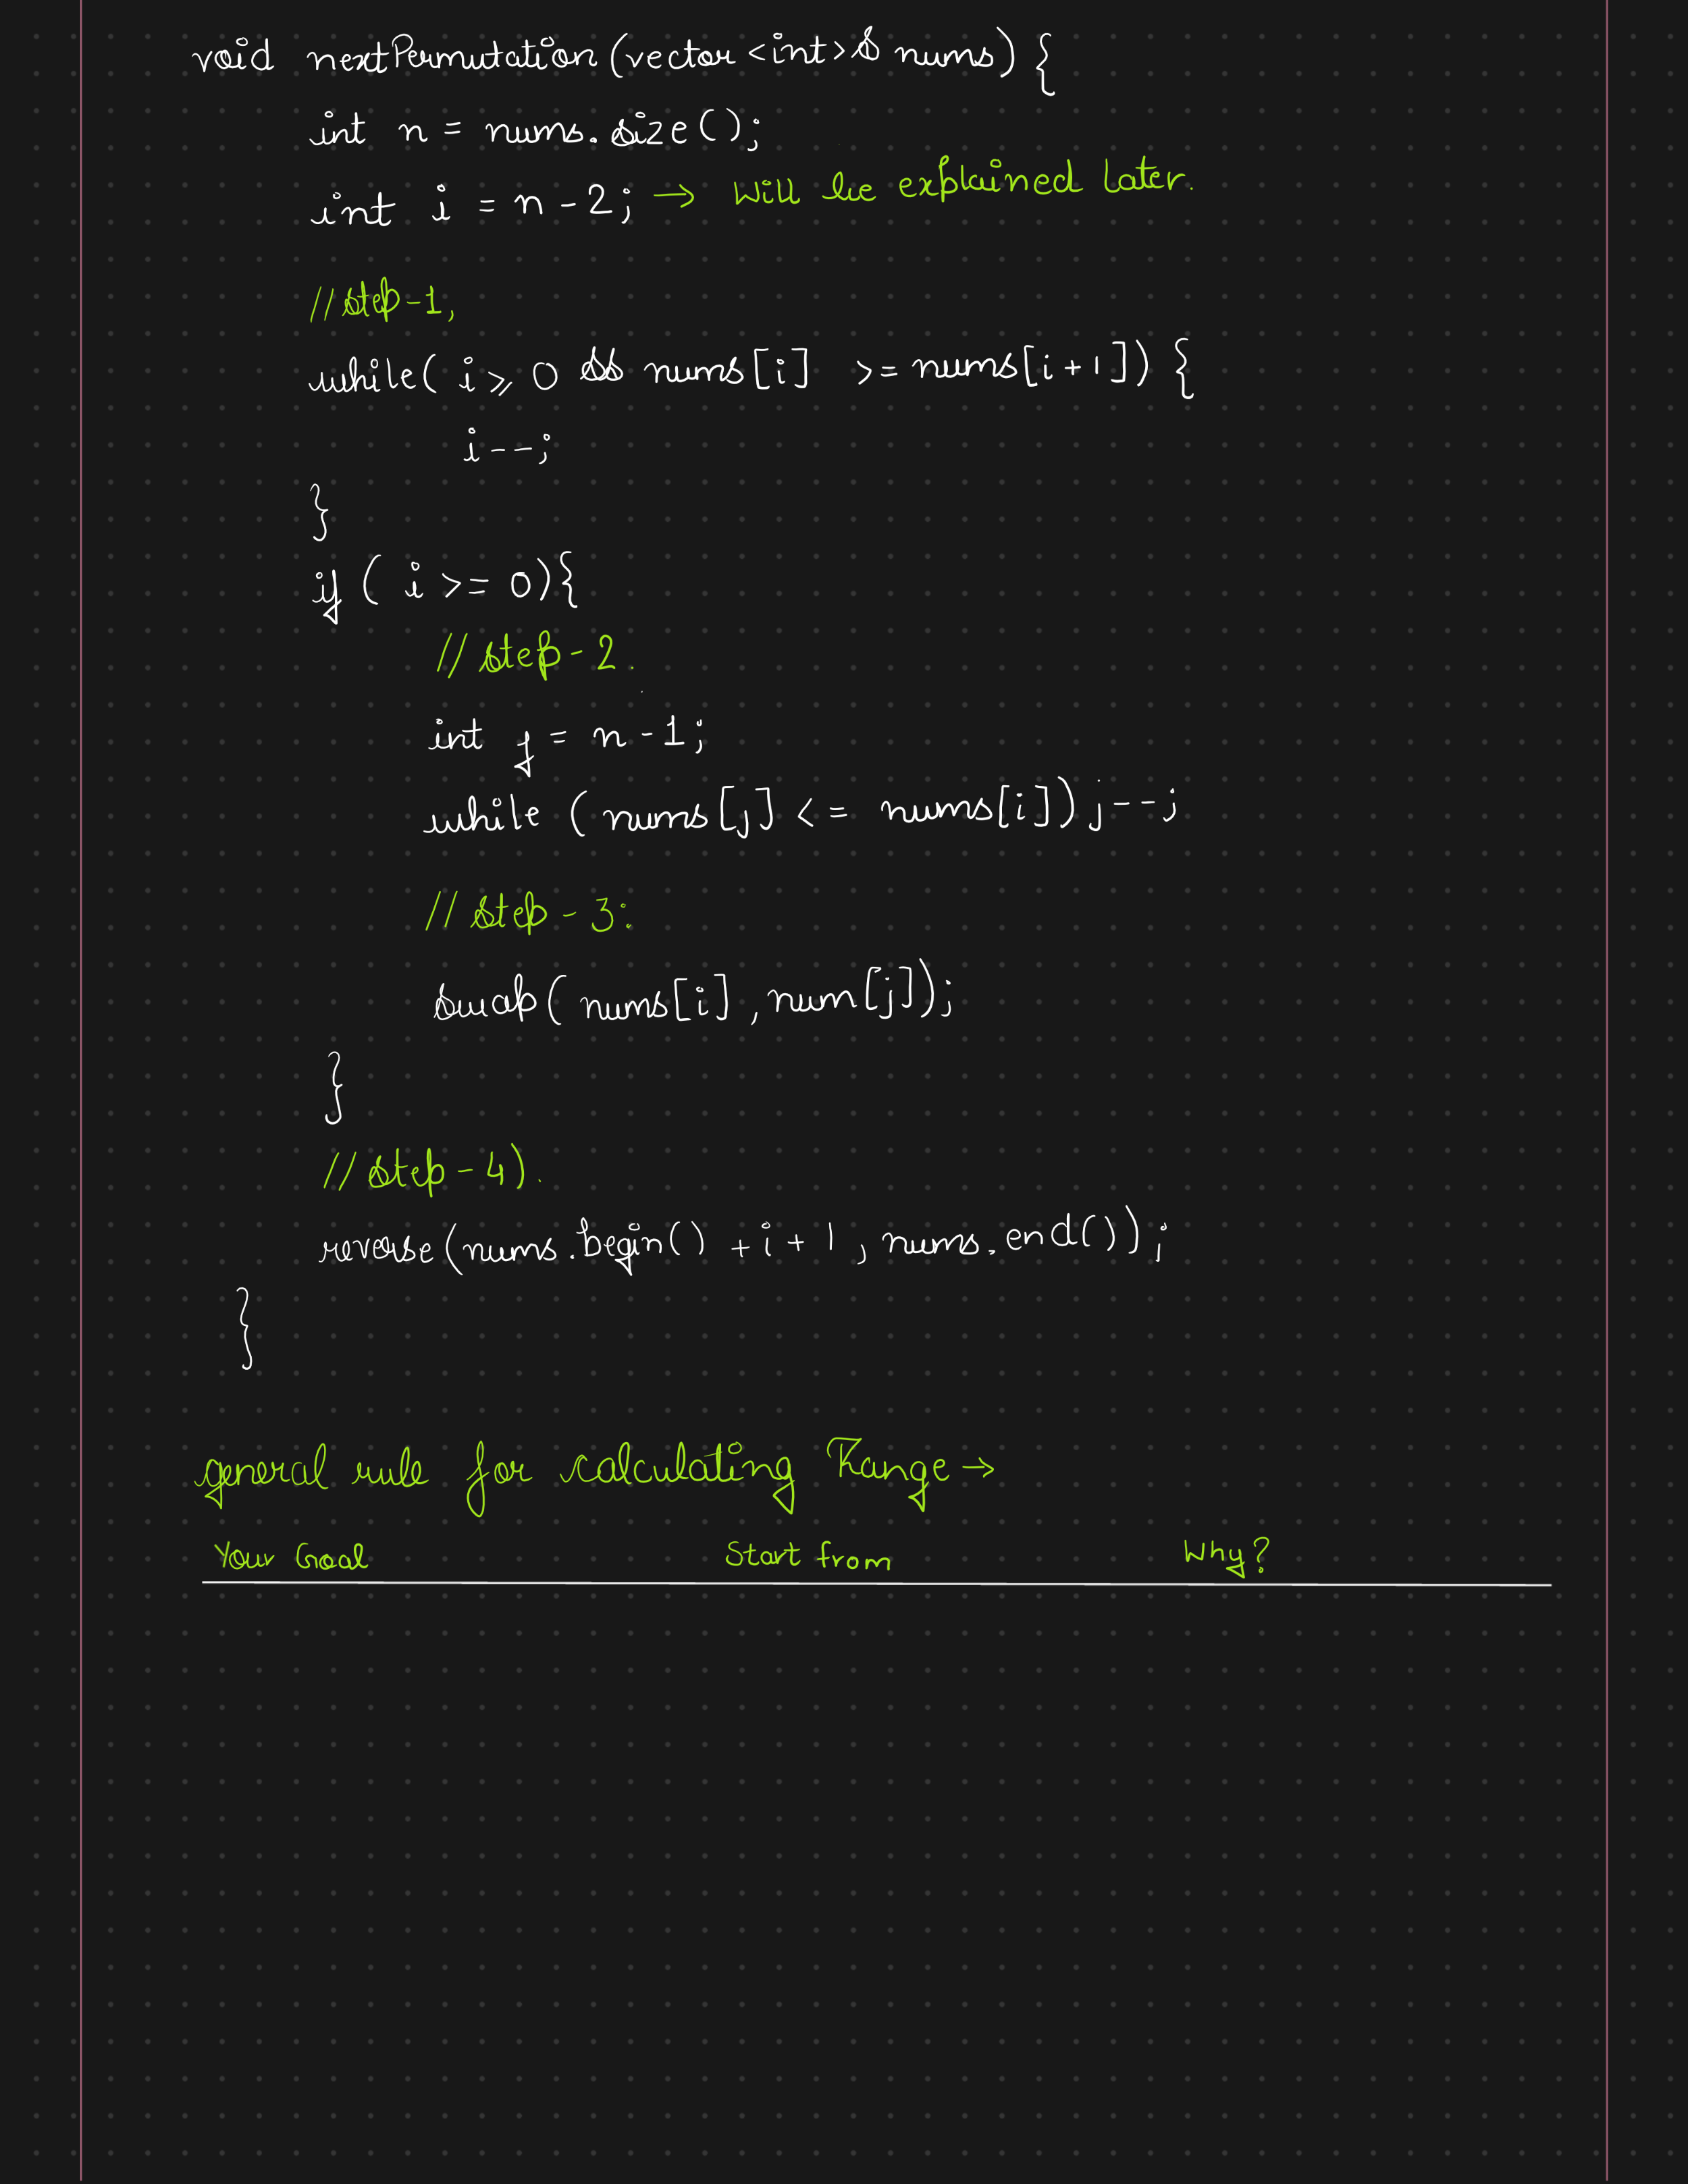 void nextPermutation (vector <int>& nums) {
int n = nums.size();
int i = n - 2; → Will be explained later.
// step-1,
while( i ⩾ 0 && nums[i] >= nums[i+1]) {
i--;
}
if ( i >= 0){
// step-2.
int j = n-1;
while (nums[j] <= nums[i]) j--;
// step-3:
swap( nums[i], num[j]);
}
// step-4).
reverse(nums.begin() + i + 1, nums.end());
}
general rule for calculating Range →
Your Goal Start from Why?